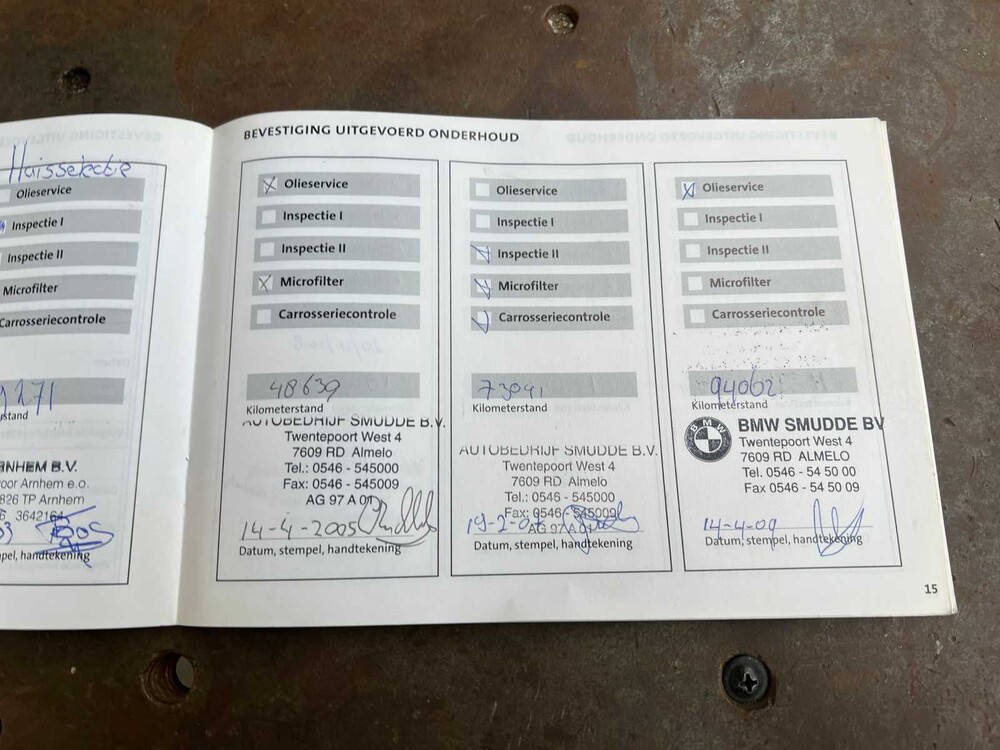 Huisselectie
Olieservice
Inspectie I
Inspectie II
Microfilter
Carrosseriecontrole
171
rstand
RNHEM B.V.
oor Arnhem e.o.
826 TP Arnhem
3642164
03 Bos
npel, handtekening
BEVESTIGING UITGEVOERD ONDERHOUD
Olieservice
Inspectie I
Inspectie II
Microfilter
Carrosseriecontrole
48639
Kilometerstand
AUTOBEDRIJF SMUDDE B.V.
Twentepoort West 4
7609 RD Almelo
Tel.: 0546 - 545000
Fax: 0546 - 545009
AG 97 A 01
14-4-2005
Datum, stempel, handtekening
Olieservice
Inspectie I
Inspectie II
Microfilter
Carrosseriecontrole
73041
Kilometerstand
AUTOBEDRIJF SMUDDE B.V.
Twentepoort West 4
7609 RD Almelo
Tel.: 0546 - 545000
Fax: 0546 - 545009
AG 97 A 01
19-2-07
Datum, stempel, handtekening
Olieservice
Inspectie I
Inspectie II
Microfilter
Carrosseriecontrole
94062
Kilometerstand
BMW
BMW SMUDDE BV
Twentepoort West 4
7609 RD ALMELO
Tel. 0546 - 54 50 00
Fax 0546 - 54 50 09
14-4-09
Datum, stempel, handtekening
15